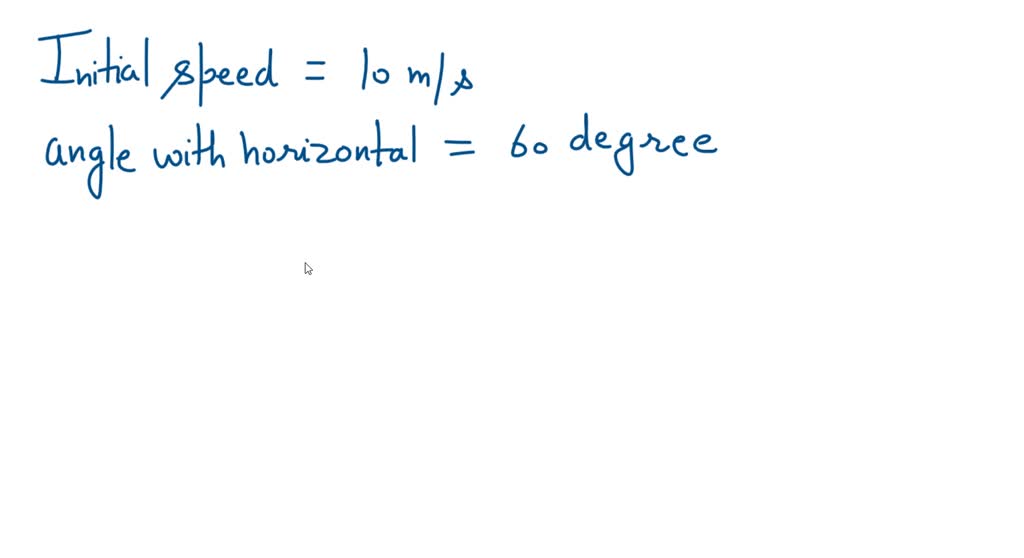 Initial speed = 10 m/s
angle with horizontal = 60 degree